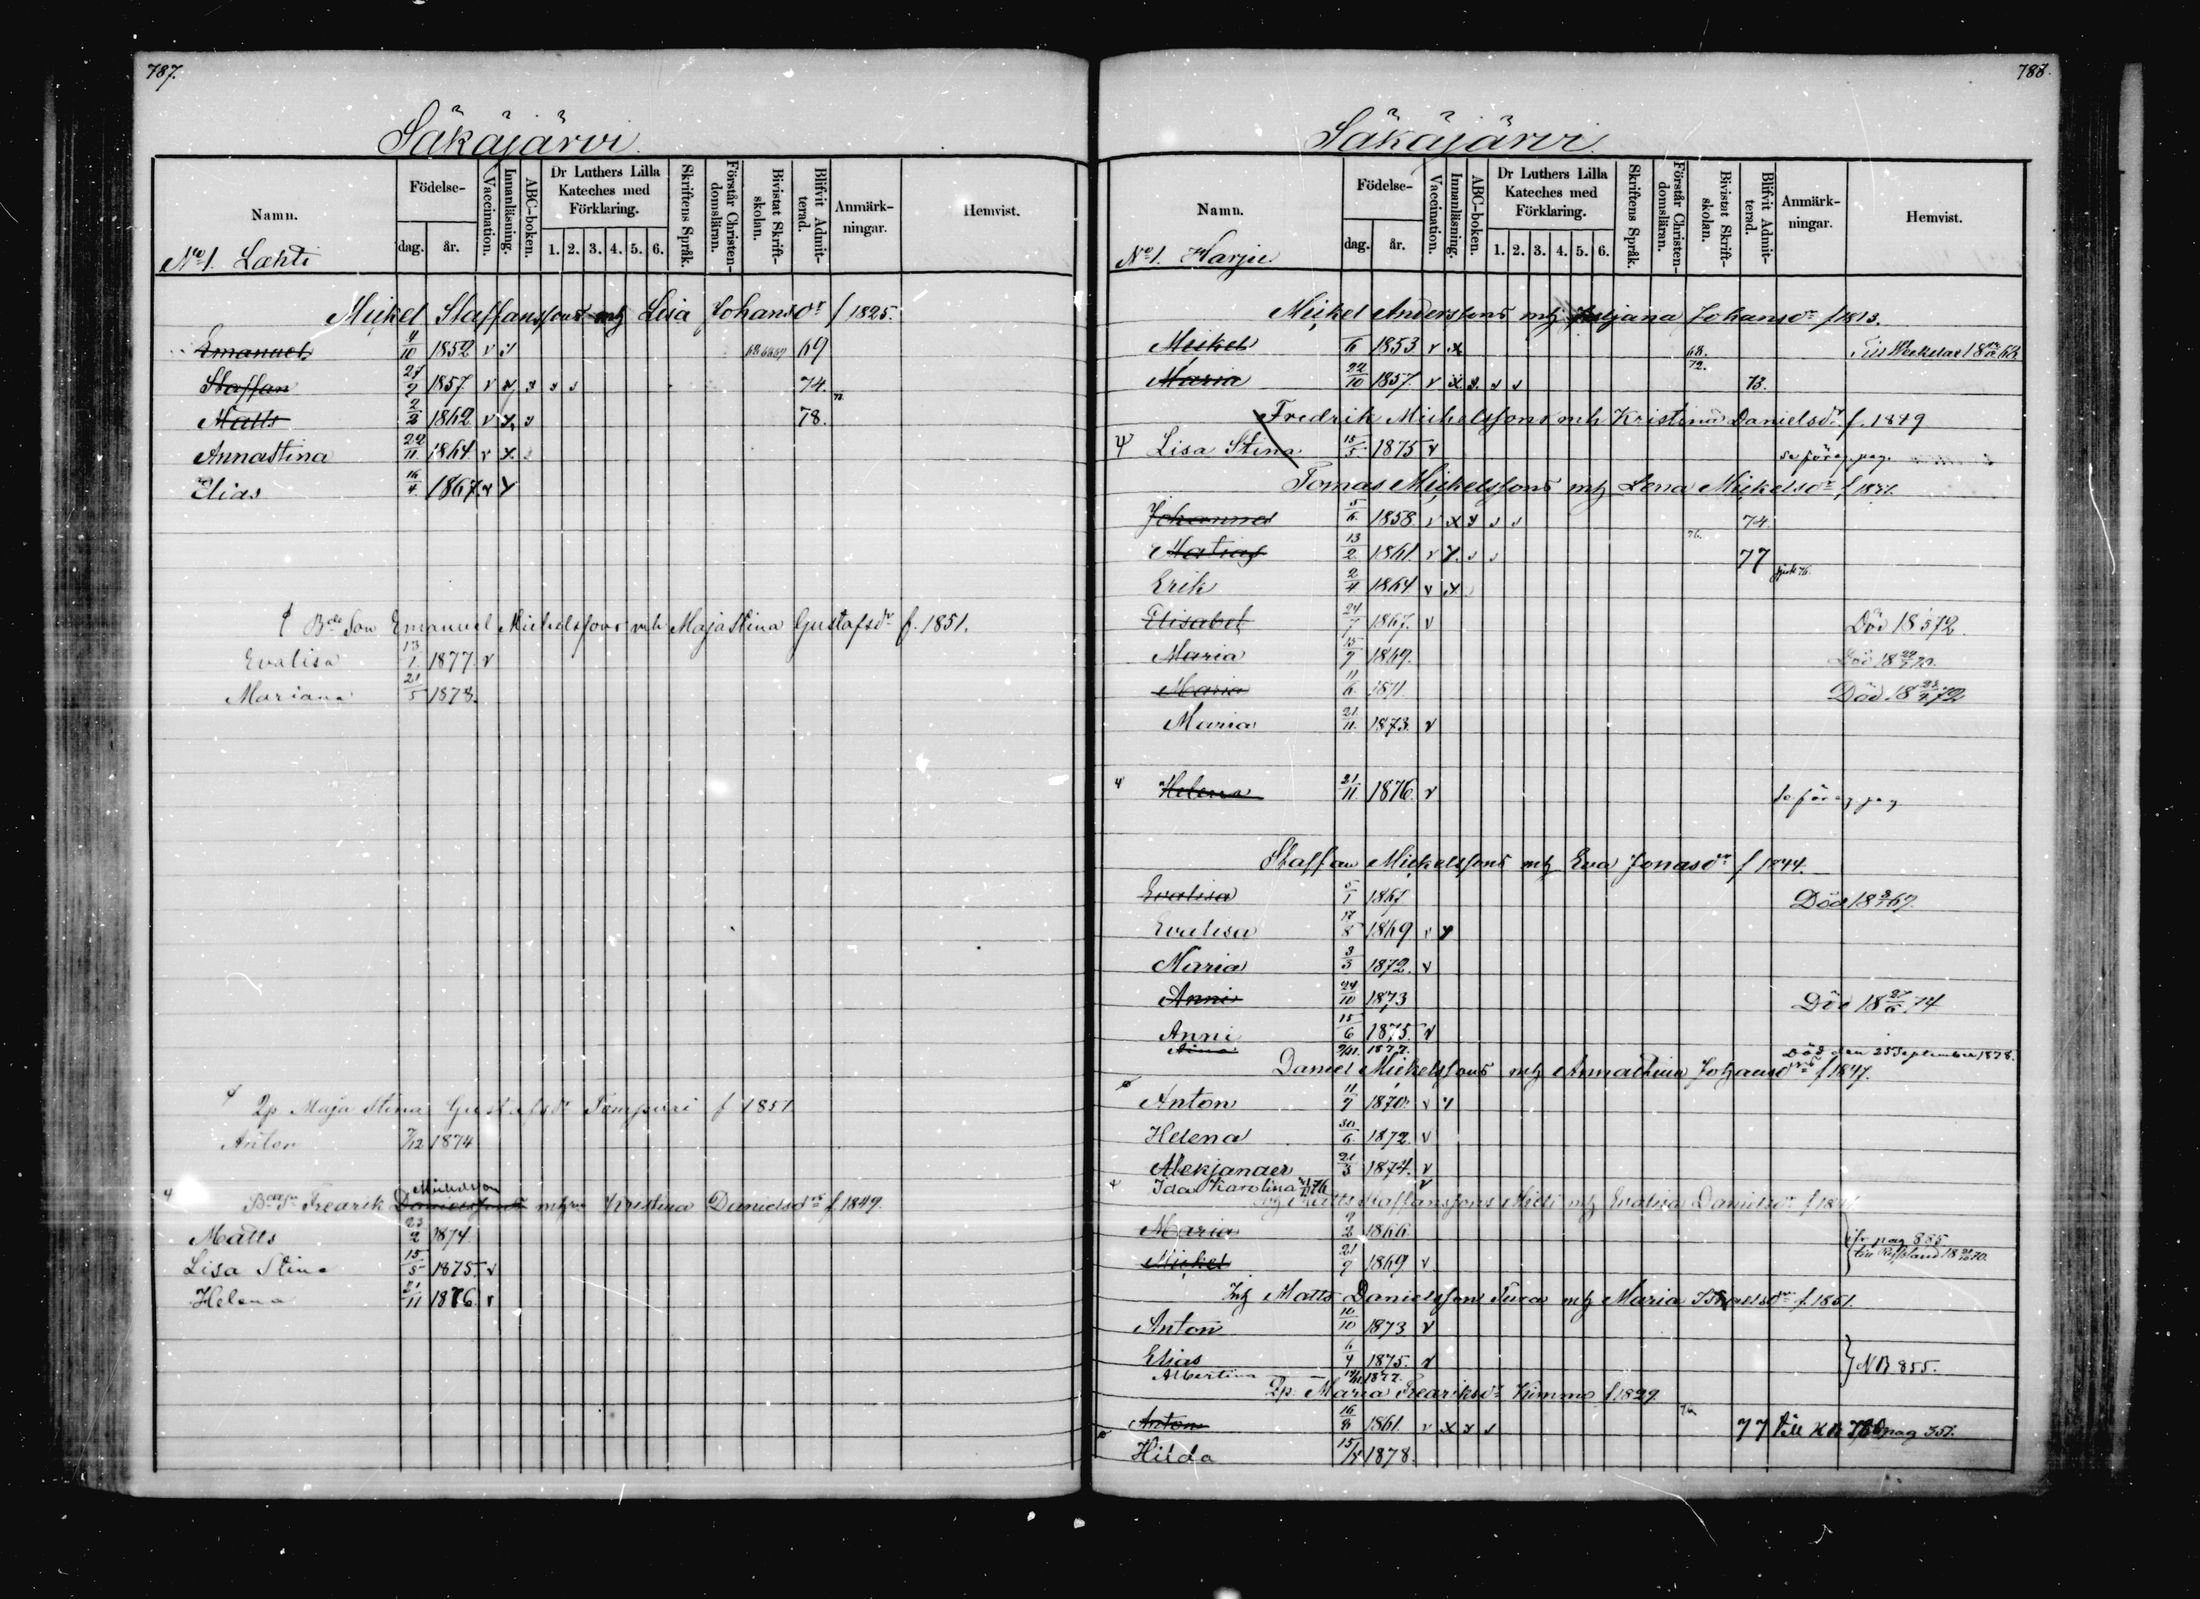 787.
Säkäjärvi.
Namn.
Födelse-
dag. år.
Vaccination.
Innanläsning.
ABC-boken.
Dr Luthers Lilla Kateches med Förklaring.
1. 2. 3. 4. 5. 6.
Skriftens Språk.
Förstår Christen-domsläran.
Bivistat Skrift-skolan.
Blifvit Admit-terad.
Anmärk-ningar.
Hemvist.
No 1. Lahti
Mickel Staffanssons mh Lisa Johansdr f 1825.
Emanuel 4/10 1852 v x 69
Staffan 27/2 1857 v x s s s 74.
Matts 2/2 1862 v x s 78.
Annastina 22/11 1864 v x
Elias 16/4 1867 v x
Bde Son Emanuel Michelssons mh Maja Stina Gustafsdr f. 1851.
Evalisa 13/1 1877 v
Mariana 21/5 1878.
Qp. Maja Stina Gustafsdr f 1851
Anton 7/12 1874
Fredrik Danielssons Michelsson Kristina Danielsdr f 1849.
Matts 23/2 1874.
Lisa Stina 15/5 1875. v
Helena 21/11 1876. v
788.
Säkäjärvi
Namn.
Födelse-
dag. år.
Vaccination.
Innanläsning.
ABC-boken.
Dr Luthers Lilla Kateches med Förklaring.
1. 2. 3. 4. 5. 6.
Skriftens Språk.
Förstår Christen-domsläran.
Bivistat Skrift-skolan.
Blifvit Admit-terad.
Anmärk-ningar.
Hemvist.
No 1. Harju
Mickel Anderssons mh Johansdr f 1813.
Mickel 6 1853 v x 68. 72.
Maria 22/10 1857. v x s s s 73.
Fredrik Michelssons mh Kristina Danielsdr f. 1849
Lisa Stina 15/5 1875 v se föreg. pag.
Tomas Mickelssons mh Lena Mickelsdr f
Johannes 5/6 1858 v x s s s 74.
Matias 13/2 1861. v x s s 76. 77
Erik 2/4 1864 v x
Elisabet 24/7 1867. v Död 18 72.
Maria 15/9 1869. Död 18
Maria 11/6 1871. Död 18 72
Maria 21/11 1873. v
Helena 21/11 1876. v se föreg. pag
Staffan Mickelssons mh Eva Jonasdr f 1844.
Evalisa 5/1 1867 Död 18 67.
Evalisa 17/8 1869 v x
Maria 3/3 1872. v
Anni 24/10 1873 Död 18 27/6 74
Anni 15/6 1875. v
1877. Död den 25 September 1878.
Daniel Mickelssons mh Annastina Johansdr f 1847.
Anton 11/9 1870. v x
Helena 30/6 1872. v
Aleksander 21/3 1874. v
Ida Karolina 76 v
Matts Staffanssons mh Evalisa Danielsdr f
Maria 2/2 1866
Mickel 21/9 1869 v
pag 855
till Ryssland 18 70.
Inh Matts Danielssons mh Maria dr f. 1851.
Anton 10/10 1873 v
Elias 6/4 1875. v
NB 855.
Albertina 1877.
Qp. Maria Fredriksdr Kimmo f. 1829
Anton 16/8 1861. v x s s 77 pag 357.
Hilda 15/ 1878.